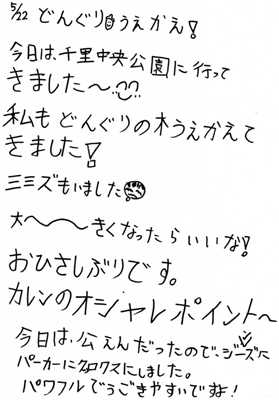 5/22 どんぐりうえかえ!
今日は、千里中央公園に行って
きました〜
私もどんぐりの木うえかえて
きました!
ミミズもいました
大〜〜きくなったらいいな!
おひさしぶりです。
カレンのオシャレポイント〜
今日は、公えんだったので、ジーズに
パーカーにクロックスにしました。
パワフルでうごきやすいですね!